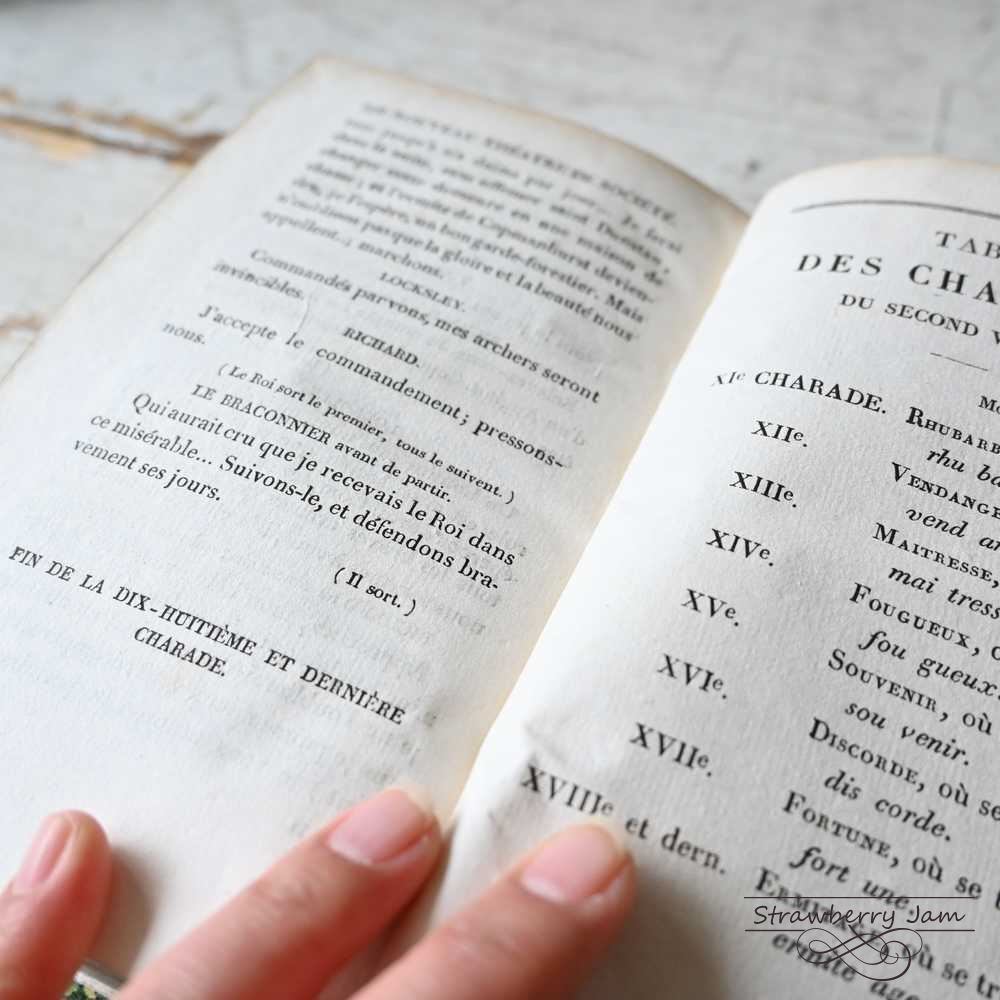 LE NOUVEAU THÉATRE DE SOCIÉTÉ.
chasse; et l'ermite de Copmanhurst devien-
dra, je l'espère, un bon garde-forestier. Mais
n'oublions pas que la gloire et la beauté nous
appellent.; marchons.
LOCKSLEY.
Commandés par vous, mes archers seront
invincibles.
RICHARD.
J'accepte le commandement; pressons-
nous.
(Le Roi sort le premier, tous le suivent.)
LE BRACONNIER avant de partir.
Qui aurait cru que je recevais le Roi dans
ce misérable... Suivons-le, et défendons bra-
vement ses jours.
(Il sort.)
FIN DE LA DIX-HUITIÈME ET DERNIÈRE
CHARADE.
TAB
DES CHA
DU SECOND V
XIe CHARADE. RHUBARB
rhu ba
XIIe. VENDANGE
vend an
XIIIe. MAITRESSE,
mai tress
XIVe. FOUGUEUX,
fou gueux
XVe. SOUVENIR, où
sou venir.
XVIe. DISCORDE, où se
dis corde.
XVIIe. FORTUNE, où se
fort une
XVIIIe et dern. ERMITAGE, où se tr
ermite age
Strawberry Jam